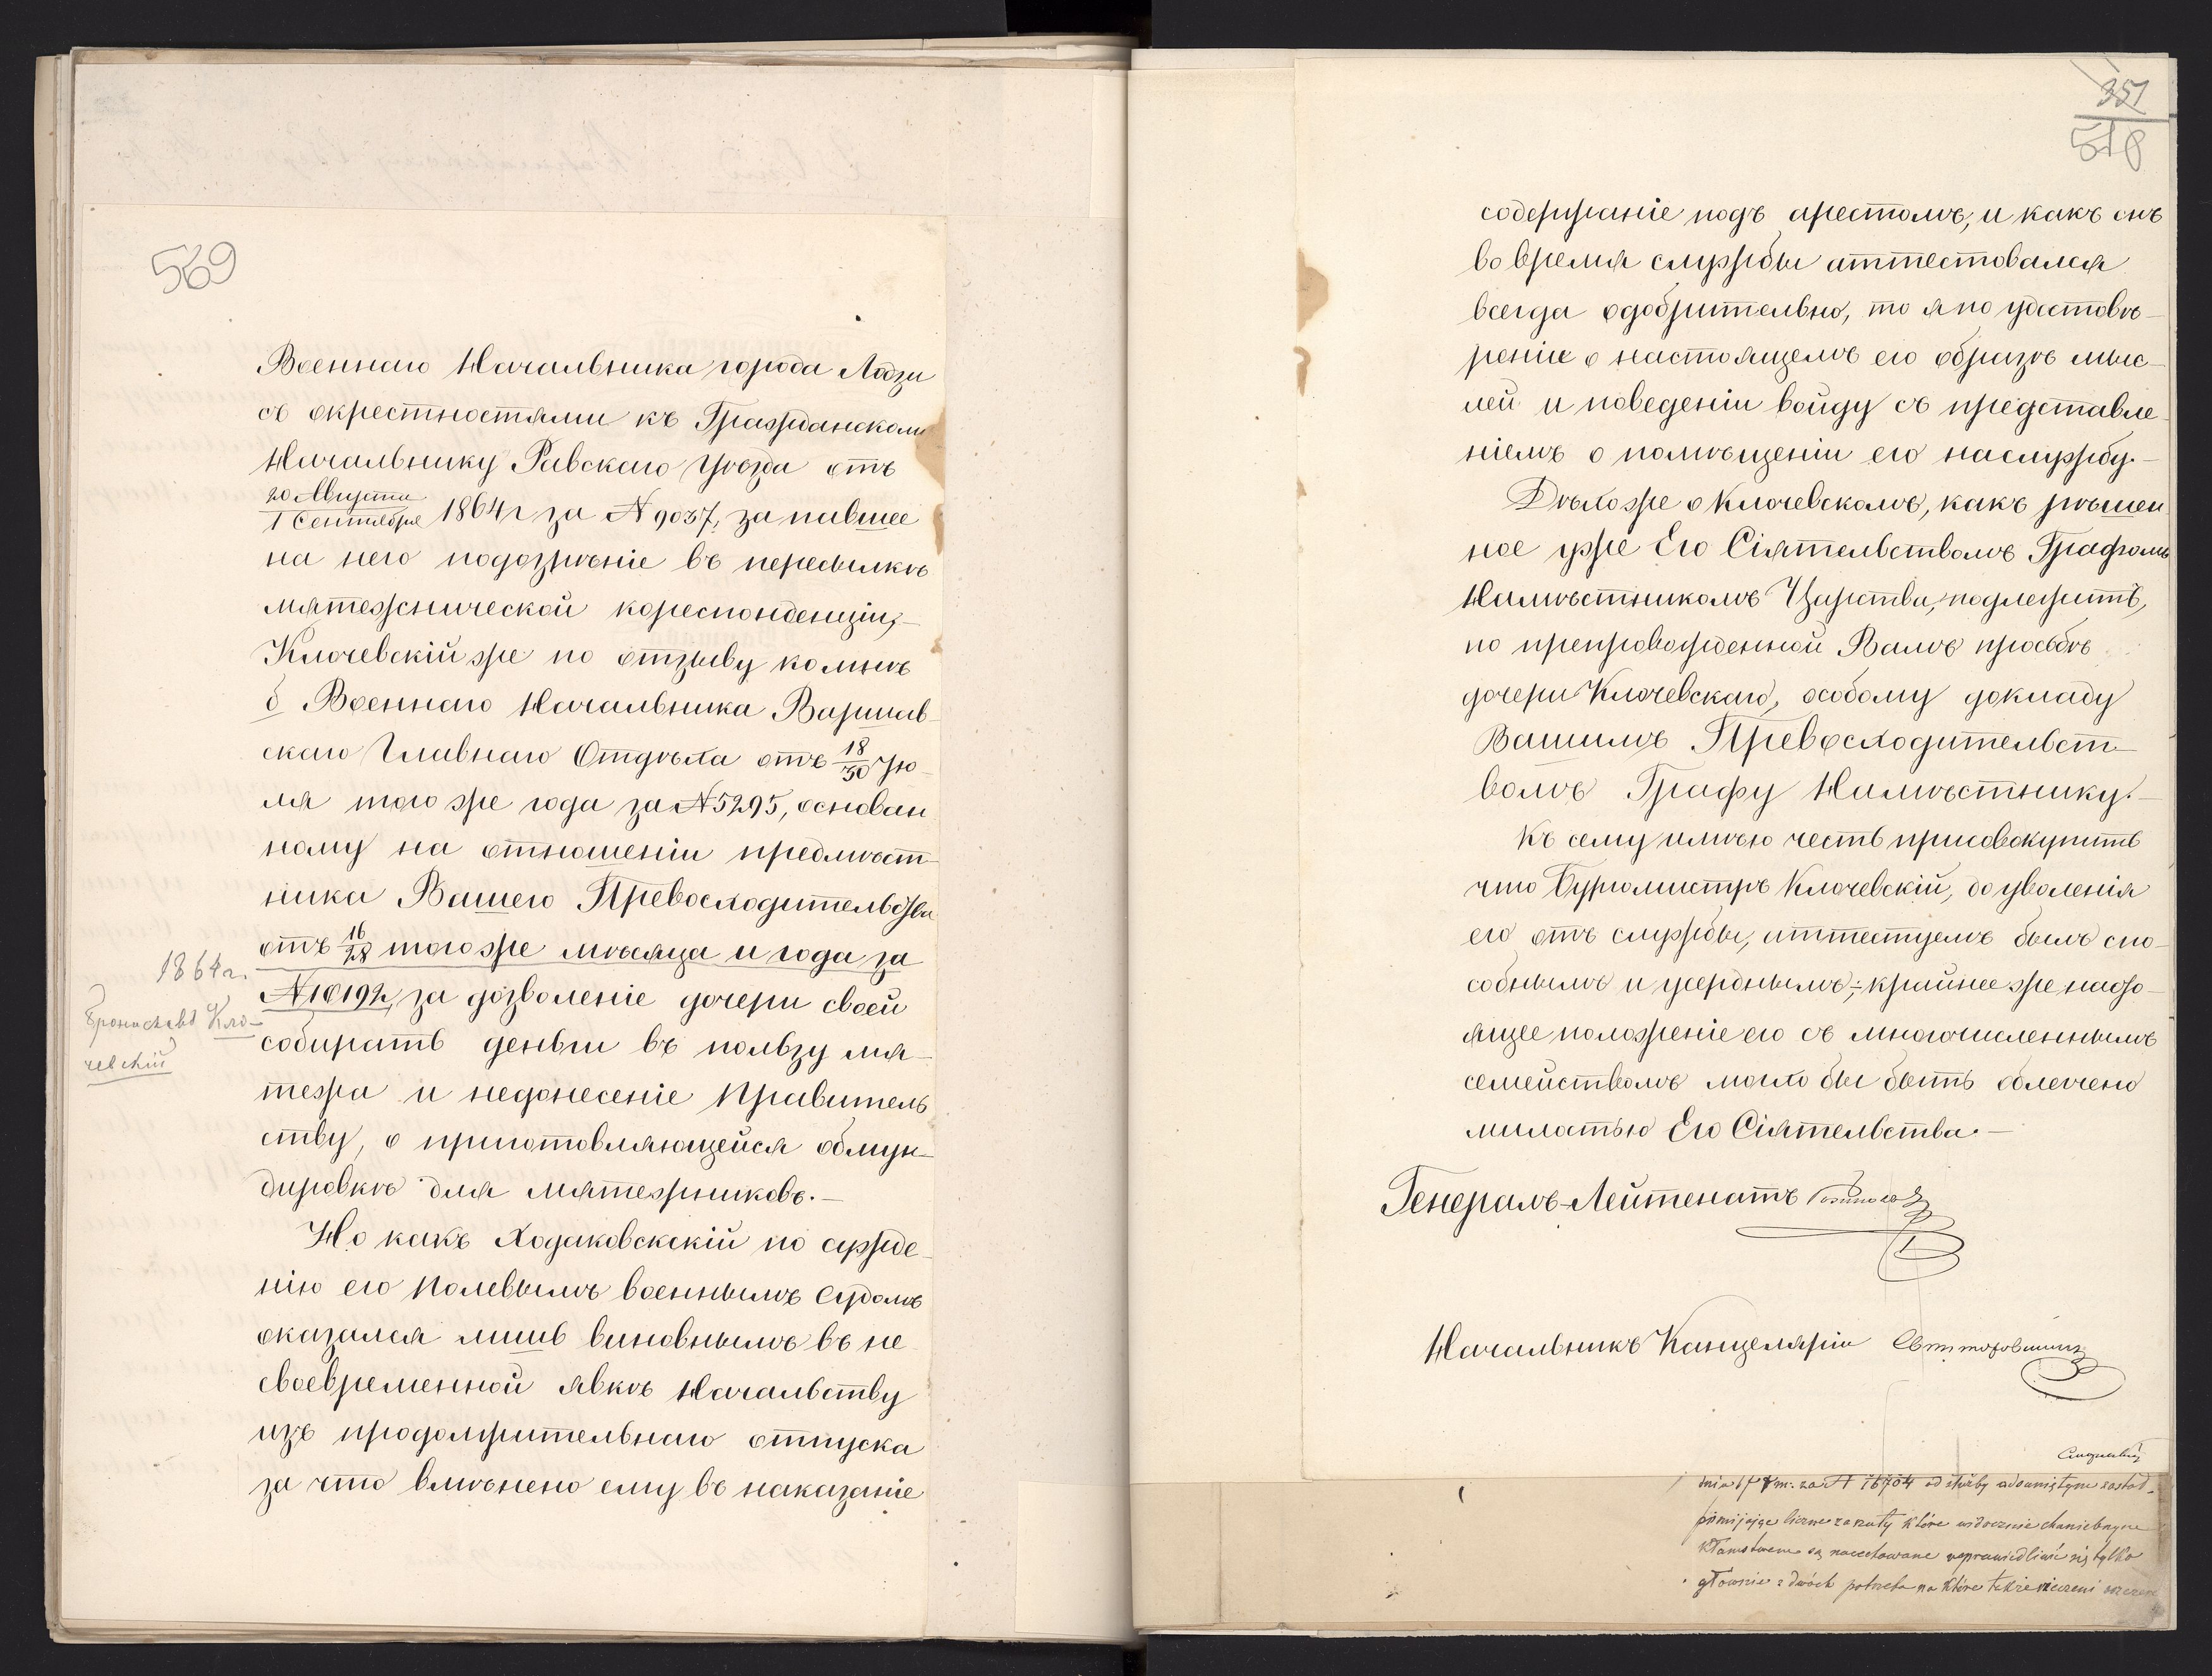 569
Военнаго Начальника города Лодзи
съ окрестностями къ Гражданскому
Начальнику Равскаго Уѣзда отъ
20 Августа
1 Сентября 1864 г за N 9037, за павшее
на него подозрѣніе въ пересылкѣ
мятежнической кореспонденціи,—
Ключевскій же по отзыву ко мнѣ
б Военнаго Начальника Варшав-
скаго Главнаго Отдѣла отъ 18/30 Ію-
ля того же года за N 5295, основан
ному на отношеніи предмѣст-
ника Вашего Превосходительства
отъ 16/28 того же мѣсяца и года за
N 10192, за дозволеніе дочери своей
собирать деньги въ пользу мя-
тежа и недонесеніе Правитель
ству, о приготовляющейся обмун-
дировкѣ для мятежниковъ.—
Но какъ Ходаковскскій по сужде-
нію его Полевымъ военнымъ Судомъ
оказался лишь виновнымъ въ не
своевременной явкѣ Начальству
изъ продолжительнаго отпуска
за что вмѣнено ему въ наказаніе
1864 г.
Брониславъ Клю-
чевскій
351
518
содержаніе подъ арестомъ, и какъ онъ
во время службы аттестовался
всегда одобрительно, то я по удостовѣ-
реніе о настоящемъ его образѣ мыс-
лей и поведеніи войду съ представле
ніемъ о помѣщеніи его на службу.—
Дѣло же о Ключевскомъ, какъ рѣшен
ное уже Его Сіятельствомъ Графомъ
Намѣстникомъ Царства, подлежитъ,
по препровожденной Вамъ просьбѣ
дочери Ключевскаго, особому докладу
Вашимъ Превосходительст-
вомъ Графу Намѣстнику.—
Къ сему имѣю честь присовокупить
что Бургомистръ Ключевскій, до уволенія
его отъ службы, аттестуемъ былъ спо-
собнымъ и усерднымъ; крайнее же насто-
ящее положеніе его съ многочисленнымъ
семействомъ могло бы быть облегчено
милостью Его Сіятельства.—
Генералъ-Лейтенантъ
Начальникъ Канцеляріи
dnia 17 m. za N 16704 od służby
pomijając liczne zarzuty które widocznie
kłamstwem są nacechowane usprawiedliwić się tylko
głównie z dwóch potrzeba na które także